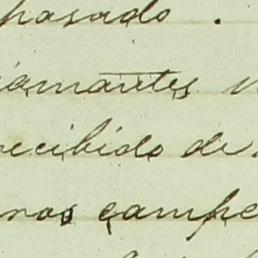 pasado.
iamantes
recibido de
nos campe